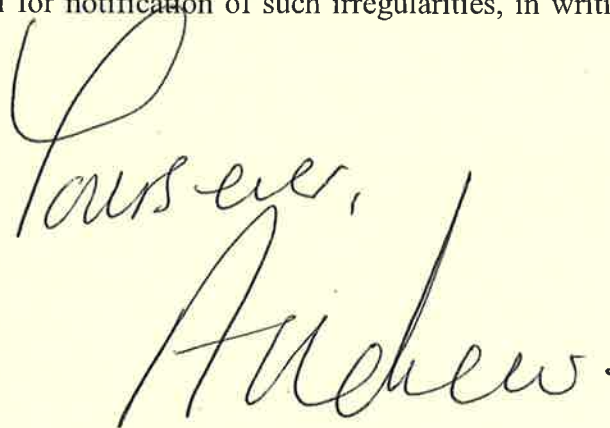 for notification of such irregularities, in writi
Yours ever,
Andrew.